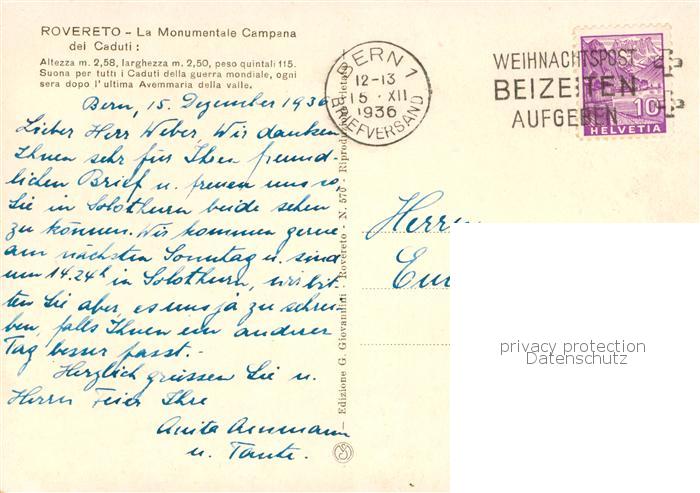 ROVERETO - La Monumentale Campana
dei Caduti :
Altezza m. 2,58, larghezza m. 2,50, peso quintali 115.
Suona per tutti i Caduti della guerra mondiale, ogni
sera dopo l'ultima Avemmaria della valle.
Bern, 15. Dezember 1936
Lieber Herr Weber, Wir danken
Ihnen sehr für Ihren freund-
lichen Brief u. freuen uns so,
Sie in Solothurn beide sehen
zu können. Wir kommen gerne
am nächsten Sonntag u. sind
um 14.24h in Solothurn, wir bit-
ten Sie aber, es uns ja zu schrei-
ben, falls Ihnen ein anderer
Tag besser passt.-
Herzlich grüssen Sie u.
Herrn Feier Ihre
Anita Ammann
u. Tante.
— Edizione G. Giovannini - Rovereto - N. 570 - Riproduzione
BERN 1
12-13
15. XII
1936
BRIEFVERSAND
WEIHNACHTSPOST
BEIZEITEN
AUFGEBEN
10
HELVETIA
Herrn
privacy protection
Datenschutz